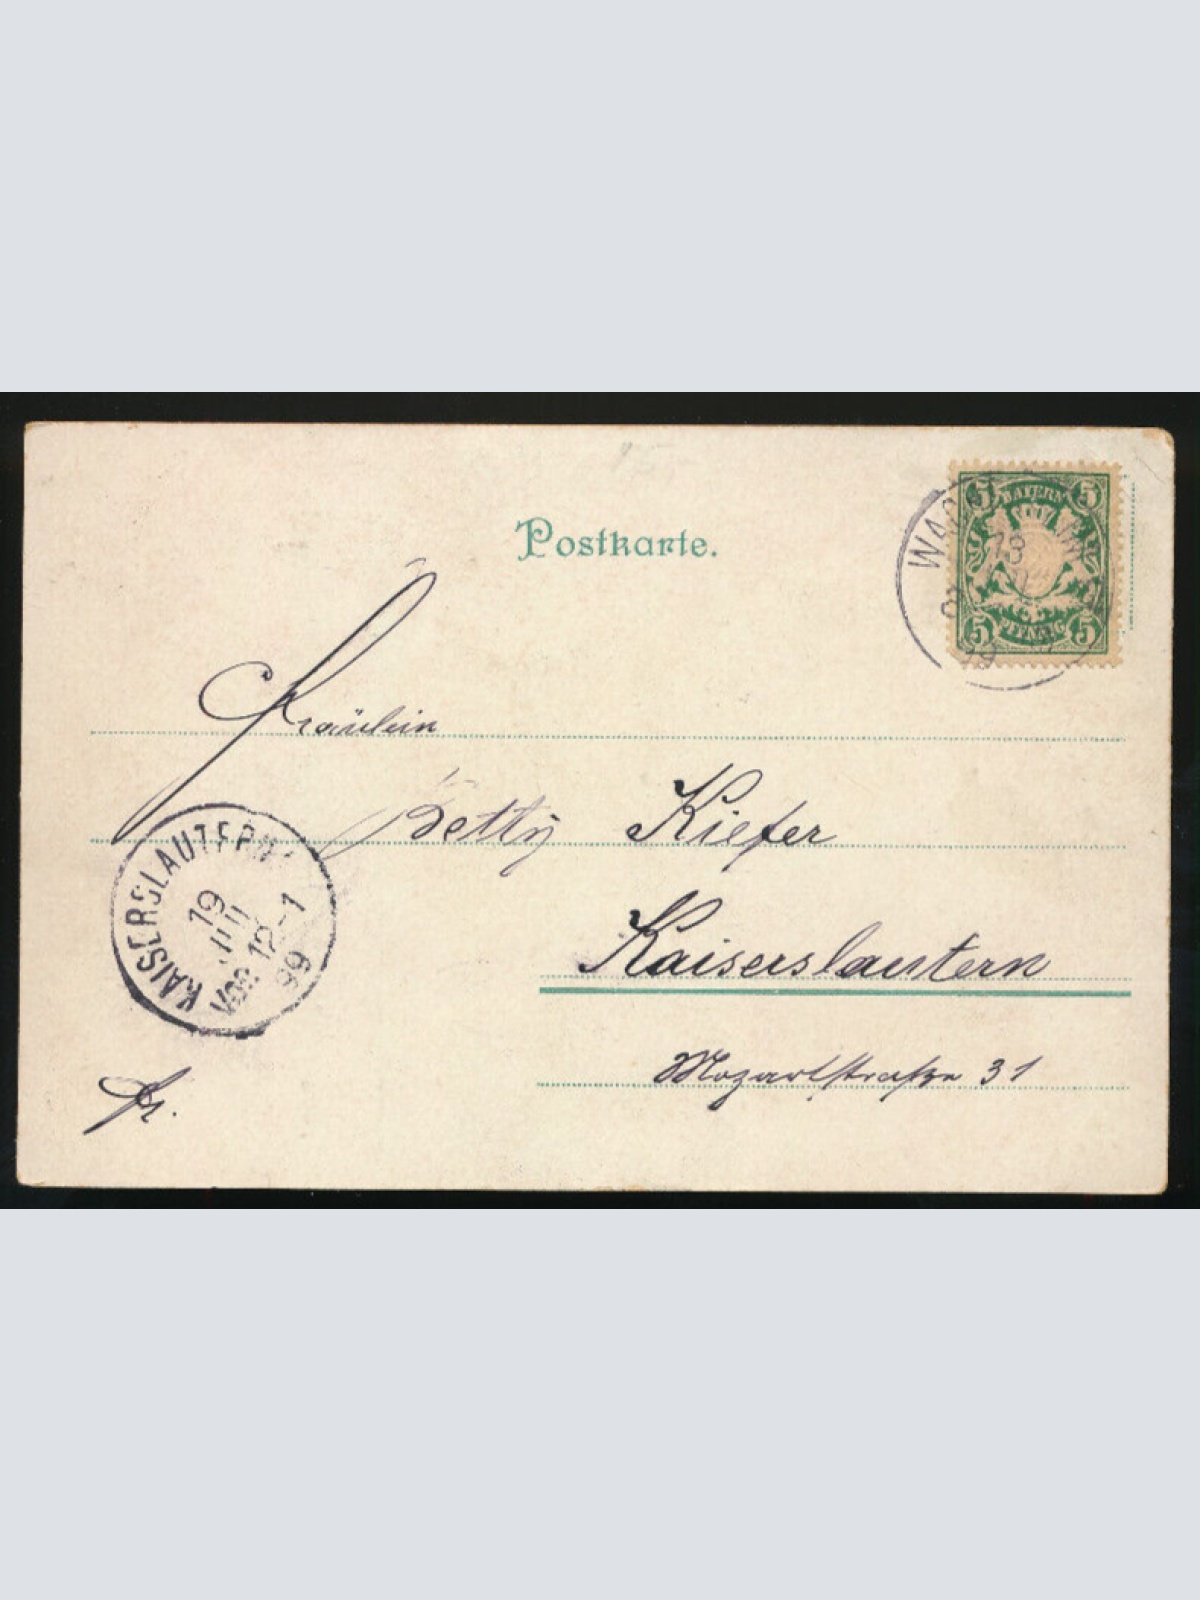 Postkarte.
5 BAYERN 5
5 PFENNIG 5
Fräulein
Betty Kiefer
Kaiserslautern
Mozartstraße 31
KAISERSLAUTERN
19
JUL
VOR 12-1
99
Fr.